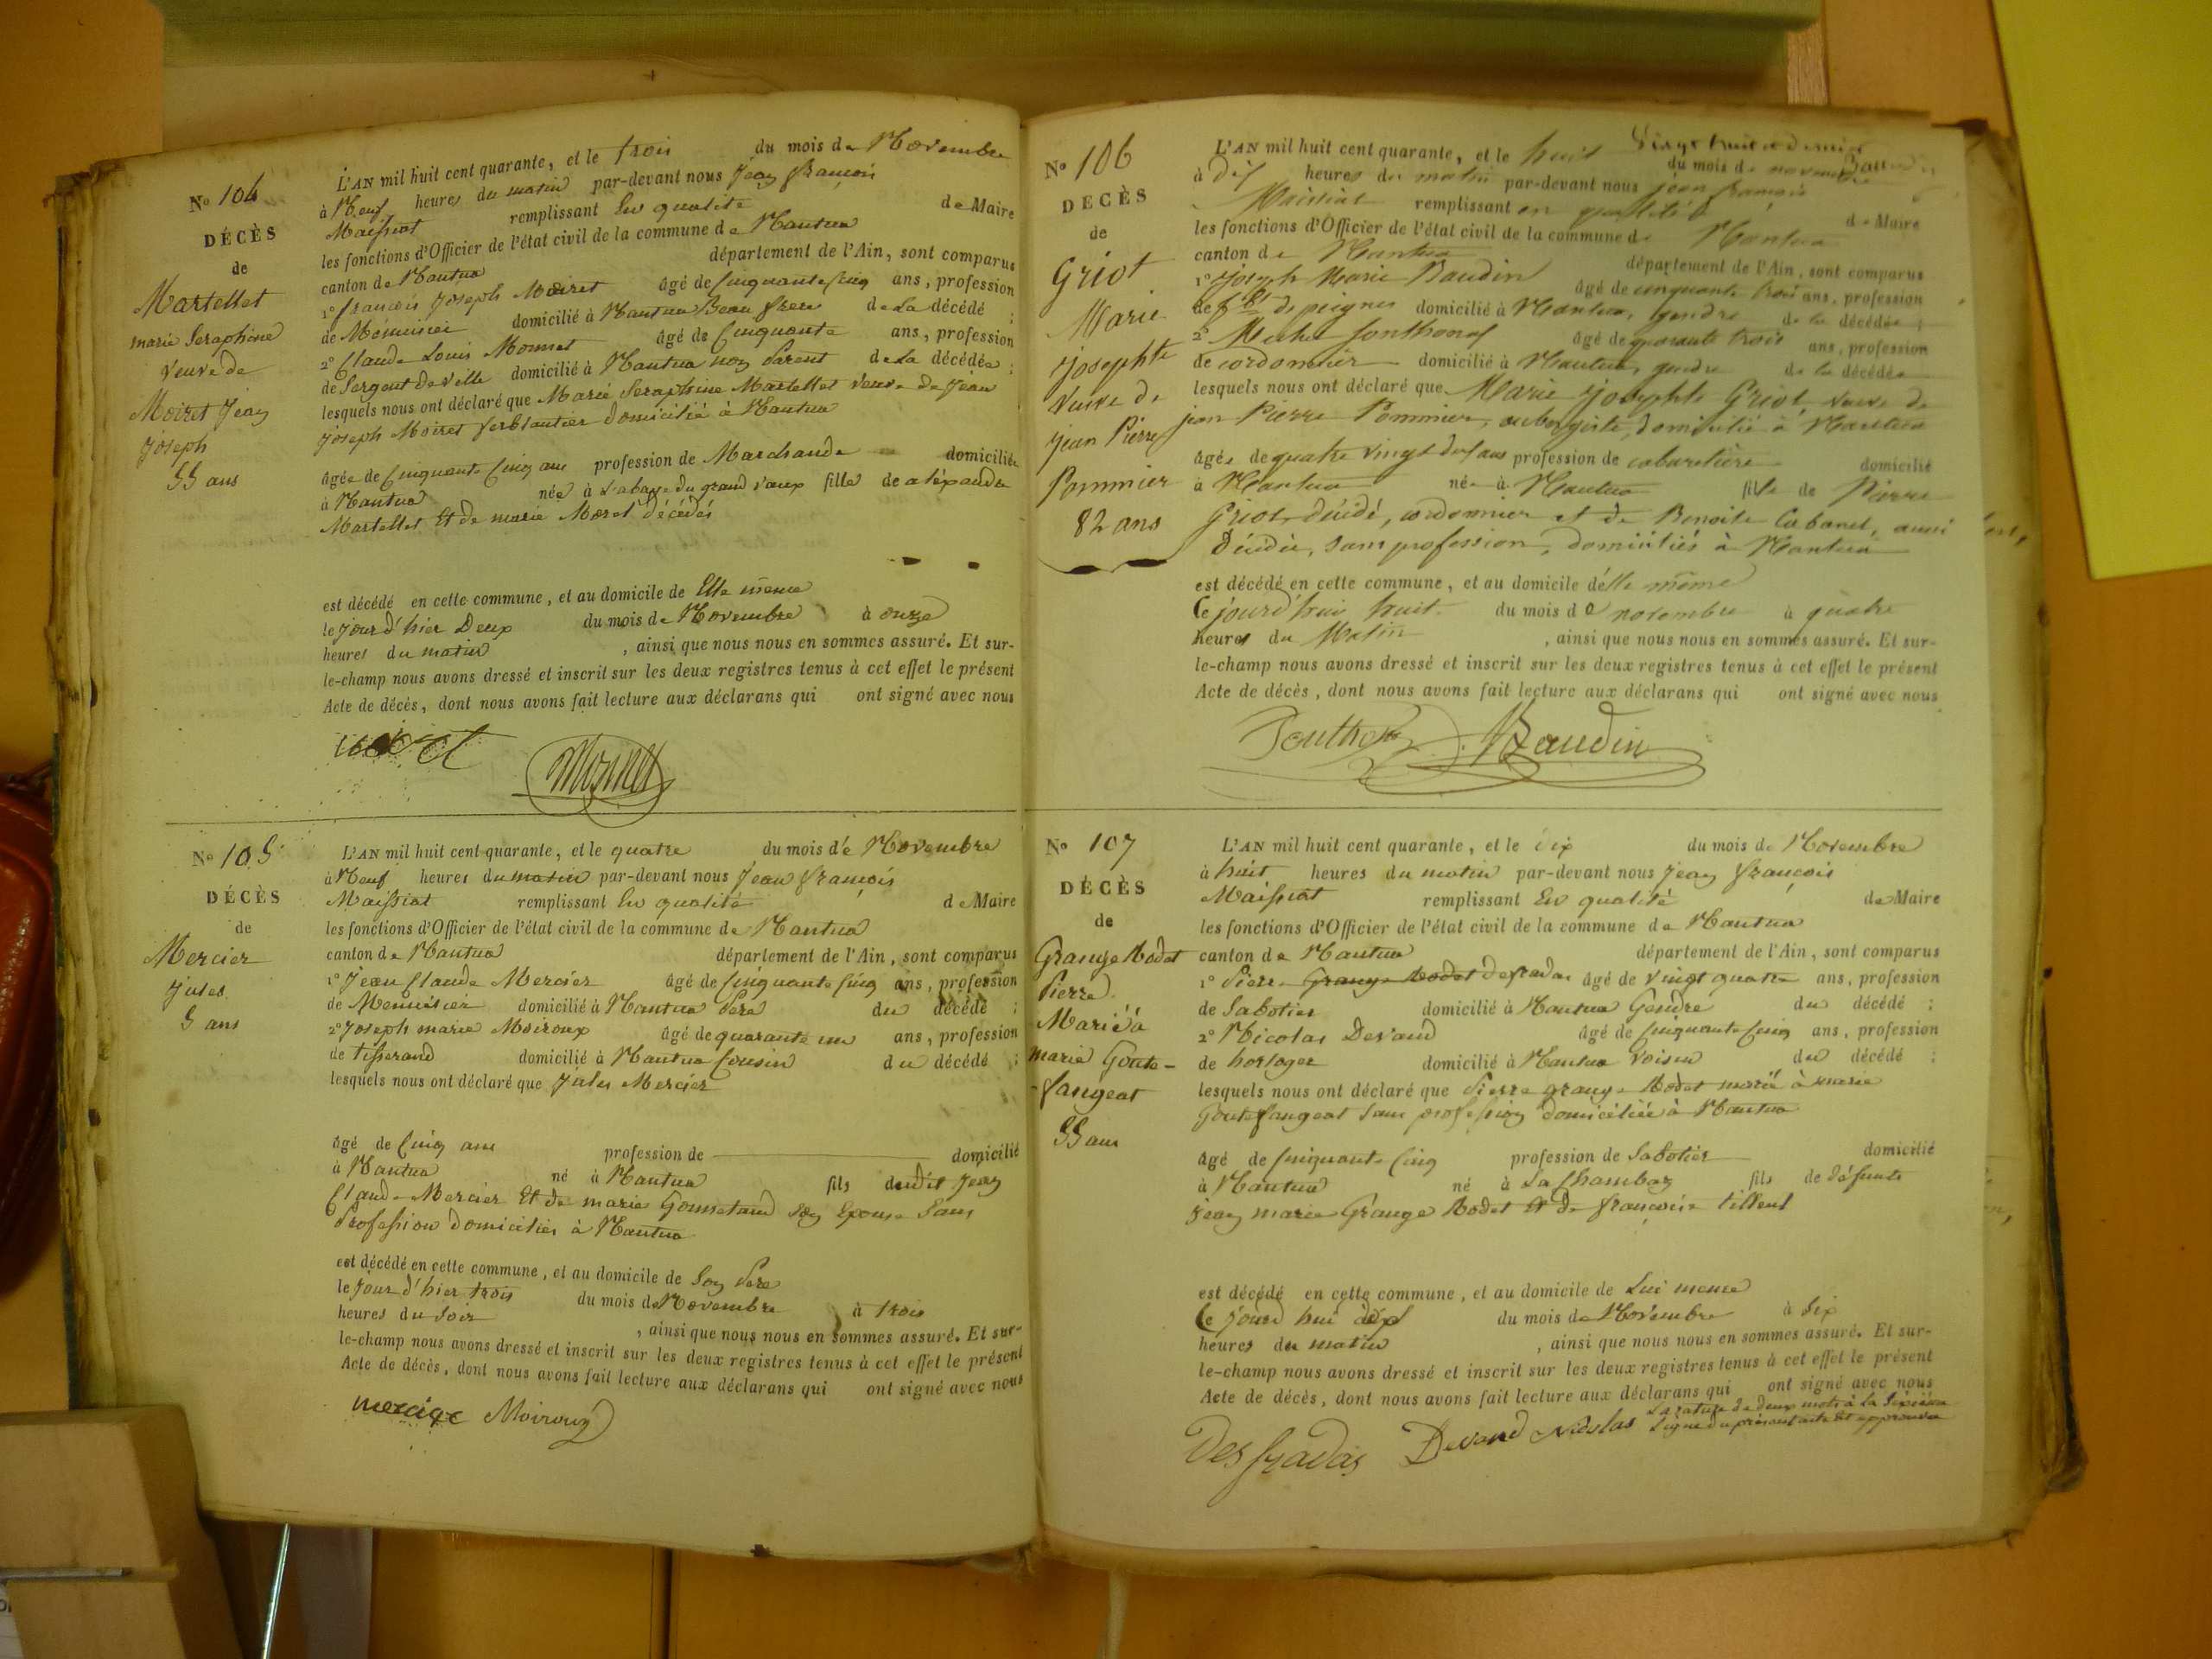 No 104
DÉCÈS
de
Martellet
marie Seraphine
Veuve de
Moiret Jean
Joseph
55 ans
L'AN mil huit cent quarante, et le trois du mois de Novembre
à Neuf heures du matin par-devant nous Jean François
Maissiat remplissant En qualité de Maire
les fonctions d'Officier de l'état civil de la commune de Nantua
canton de Nantua département de l'Ain, sont comparus
1º françois Joseph Moiret âgé de Cinquante Cinq ans, profession
de Menuisier domicilié à Nantua Beau frere de La décédé ;
2º Claude Louis Monnet âgé de Cinquante ans, profession
de Sergent de Ville domicilié à Nantua non Parent de La décédée ;
lesquels nous ont déclaré que Marie Seraphine Martellet veuve de Jean
Joseph Moiret ferblantier domicilié à Nantua
âgée de Cinquante Cinq ans profession de Marchande domiciliée
à Nantua née à L'abaye du grand vaux fille de aléxandre
Martellet Et de marie Morel décédés
est décédé en cette commune, et au domicile de Elle même
le jour d'hier Deux du mois de Novembre à onze
heures du matin , ainsi que nous nous en sommes assuré. Et sur-
le-champ nous avons dressé et inscrit sur les deux registres tenus à cet effet le présent
Acte de décès, dont nous avons fait lecture aux déclarans qui ont signé avec nous
Monnet
No 105
DÉCÈS
de
Mercier
Jules
5 ans
L'AN mil huit cent quarante, et le quatre du mois de Novembre
à Neuf heures du matin par-devant nous Jean François
Maissiat remplissant En qualité de Maire
les fonctions d'Officier de l'état civil de la commune de Nantua
canton de Nantua département de l'Ain, sont comparus
1º Jean Claude Mercier âgé de Cinquante Cinq ans, profession
de Menuisier domicilié à Nantua Père du décédé ;
2º Joseph marie Moiroux âgé de quarante un ans, profession
de tisserand domicilié à Nantua Cousin du décédé ;
lesquels nous ont déclaré que Jules Mercier
âgé de Cinq ans profession de domicilié
à Nantua né à Nantua fils dudit Jean
Claude Mercier Et de marie Gonnetand Son Epouse Sans
Profession domiciliés à Nantua
est décédé en cette commune, et au domicile de Son Père
le jour d'hier trois du mois de Novembre à trois
heures du Soir , ainsi que nous nous en sommes assuré. Et sur-
le-champ nous avons dressé et inscrit sur les deux registres tenus à cet effet le présent
Acte de décès, dont nous avons fait lecture aux déclarans qui ont signé avec nous
mercier Moiroux
No 106
DÉCÈS
de
Griot
Marie
Josephte
Veuve de
jean Pierre
Pommier
82 ans
L'AN mil huit cent quarante, et le huit du mois de novembre
à dix heures du matin par-devant nous jean françois
Maissiat remplissant en qualité de Maire
les fonctions d'Officier de l'état civil de la commune de Nantua
canton de Nantua département de l'Ain, sont comparus
1º Joseph Marie Baudin âgé de cinquante trois ans, profession
de fbt de peignes domicilié à Nantua, gendre de la décédée ;
2º Michel Jonthonet âgé de quarante trois ans, profession
de cordonnier domicilié à Nantua, gendre de la décédée
lesquels nous ont déclaré que Marie Josephte Griot, veuve de
jean Pierre Pommier, aubergiste, domicilié à Nantua
âgée de quatre vingt deux ans profession de cabaretière domicilié
à Nantua née à Nantua fille de Pierre
Griot, décédé, cordonnier et de Benoite Cabanet, aussi
décédée, sans profession, domiciliés à Nantua
est décédé en cette commune, et au domicile d'elle même
Ce jourd'hui huit du mois de novembre à quatre
heures du Matin , ainsi que nous nous en sommes assuré. Et sur-
le-champ nous avons dressé et inscrit sur les deux registres tenus à cet effet le présent
Acte de décès, dont nous avons fait lecture aux déclarans qui ont signé avec nous
Baudin
No 107
DÉCÈS
de
Grange Bodet
Pierre
Marié à
marie Goute-
fangeat
55 ans
L'AN mil huit cent quarante, et le dix du mois de Novembre
à huit heures du matin par-devant nous Jean François
Maissiat remplissant En qualité de Maire
les fonctions d'Officier de l'état civil de la commune de Nantua
canton de Nantua département de l'Ain, sont comparus
1º Pierre Grange Bodet Desfradas âgé de vingt quatre ans, profession
de Sabotier domicilié à Nantua Gendre du décédé ;
2º Nicolas Devaud âgé de Cinquante Cinq ans, profession
de horloger domicilié à Nantua Voisin du décédé ;
lesquels nous ont déclaré que Pierre grange Bodet marié à marie
Goutefangeat Sans profession domiciliée à Nantua
âgé de Cinquante Cinq profession de Sabotier domicilié
à Nantua né à La Chambaz fils de défunts
Jean marie Grange Bodet Et de françoise tilleul
est décédé en cette commune, et au domicile de Lui meme
Ce jourd hui dix du mois de Novembre à Six
heures du matin , ainsi que nous nous en sommes assuré. Et sur-
le-champ nous avons dressé et inscrit sur les deux registres tenus à cet effet le présent
Acte de décès, dont nous avons fait lecture aux déclarans qui ont signé avec nous
La rature de deux mots à La Sixième
Ligne du présent acte Est approuvée
Desfradas Devaud Nicolas